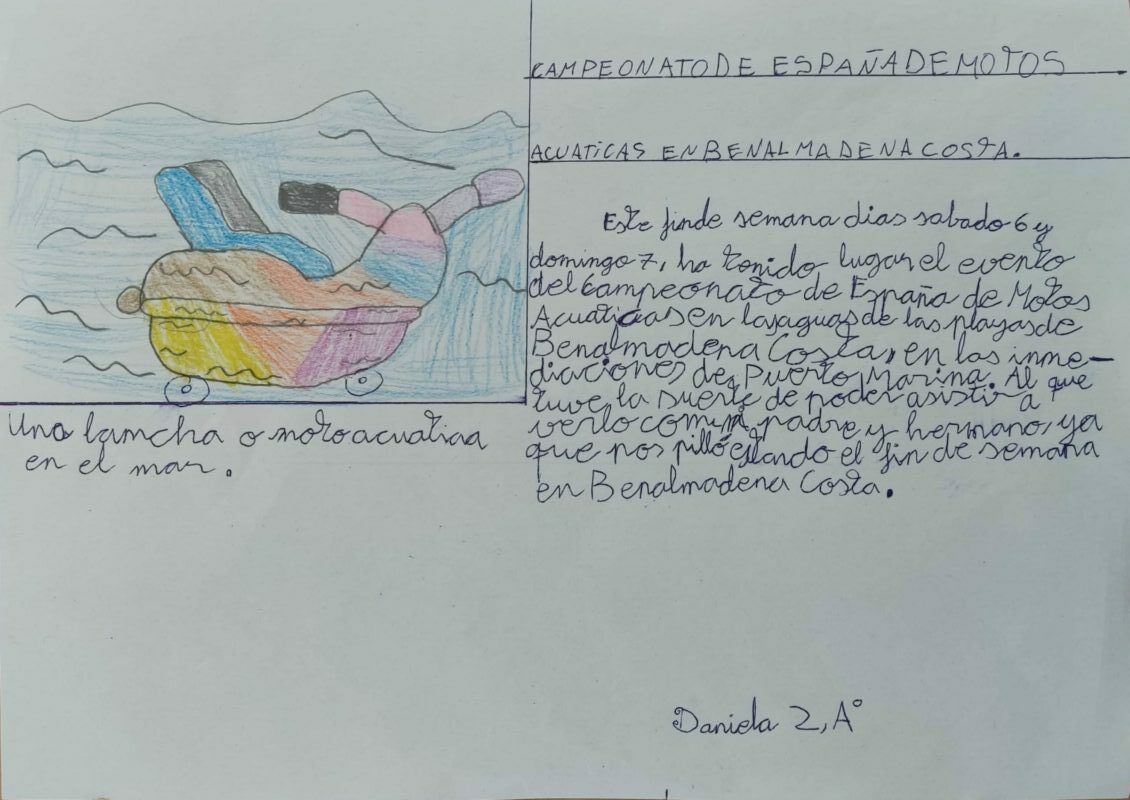 CAMPEONATO DE ESPAÑA DE MOTOS
ACUATICAS EN BENALMADENA COSTA.
Este finde semana dias sabado 6 y
domingo 7, ha tenido lugar el evento
del Campeonato de España de Motos
Acuaticas en las aguas de las playas de
Benalmadena Costa, en las inme-
diaciones de Puerto Marina. Al que
tuve la suerte de poder asistir a
verlo com mi padre y hermano, ya
que nos pilló estando el fin de semana
en Benalmadena Costa.
Una lamcha o moto acuatica
en el mar.
Daniela 2, A°